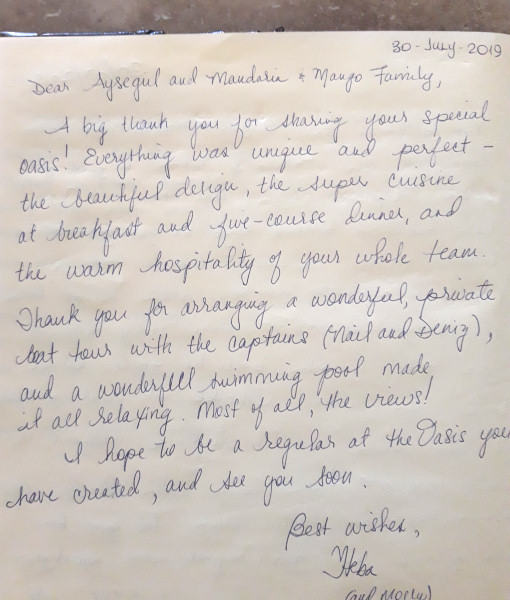 30-July-2019
Dear Aysegul and Mandaria & Mango Family,
A big thank you for sharing your special
oasis! Everything was unique and perfect -
the beautiful design, the super cuisine
at breakfast and five-course dinner, and
the warm hospitality of your whole team.
Thank you for arranging a wonderful, private
boat tour with the captains (Nail and Deniz),
and a wonderful swimming pool made
it all relaxing. Most of all, the views!
I hope to be a regular at the Oasis you
have created, and see you soon.
Best wishes,
Heba
(and Molly)